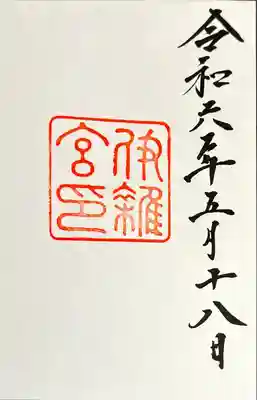 令和六年五月十八日
伊雑
宮印